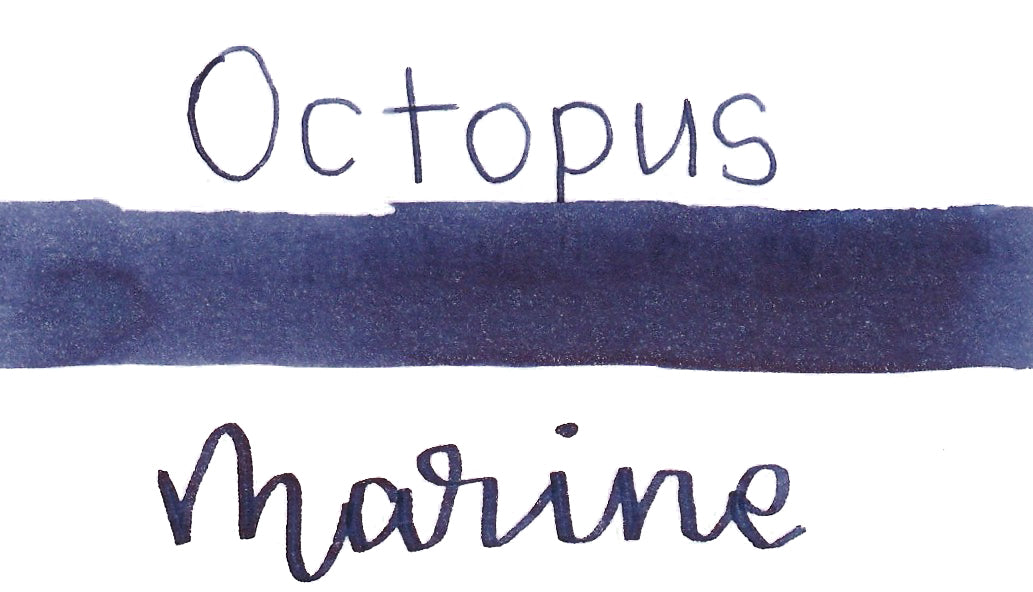 Octopus
Marine